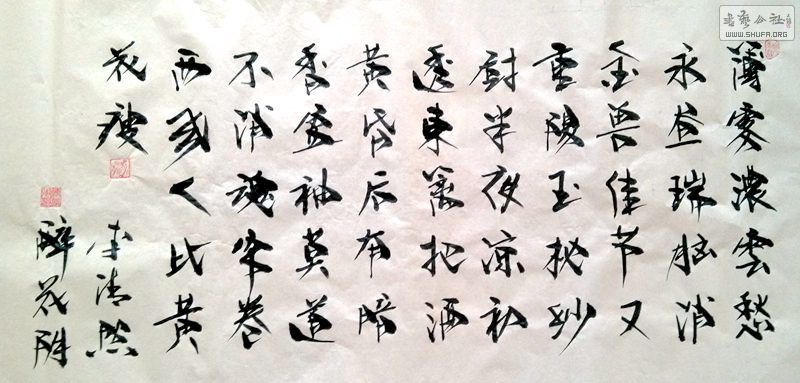 薄雾濃雲愁
永昼瑞脑消
金兽佳节又
重陽玉枕纱
厨半夜凉初
透東篱把酒
黄昏后有暗
香盈袖莫道
不消魂帘卷
西风人比黄
花瘦
李清照
醉花阴
书艺公社
WWW.SHUFA.ORG